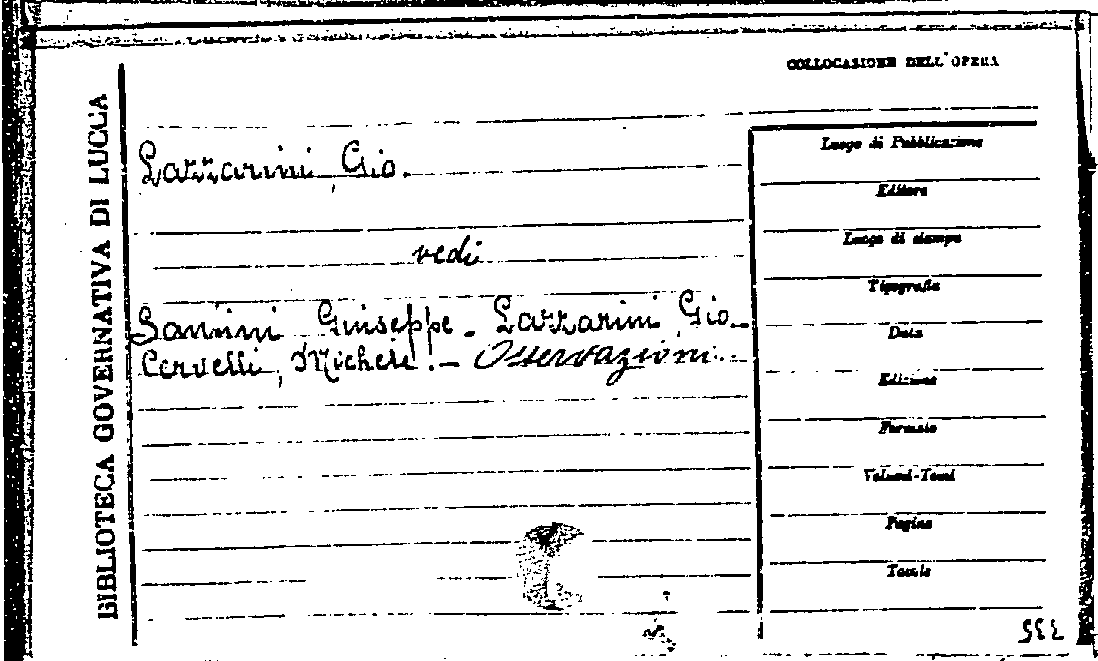 COLLOCASIONE DELL'OPERA
BIBLIOTECA GOVERNATIVA DI LUCCA
Lazzarini, Gio.
vedi
Santini, Giuseppe - Lazzarini, Gio -
Cervelli, Michele! - Osservazioni...
Luogo di Pubblicazione
Editore
Luogo di stampa
Tipografia
Data
Edizione
Formato
Volumi-Tomi
Pagine
Tavole